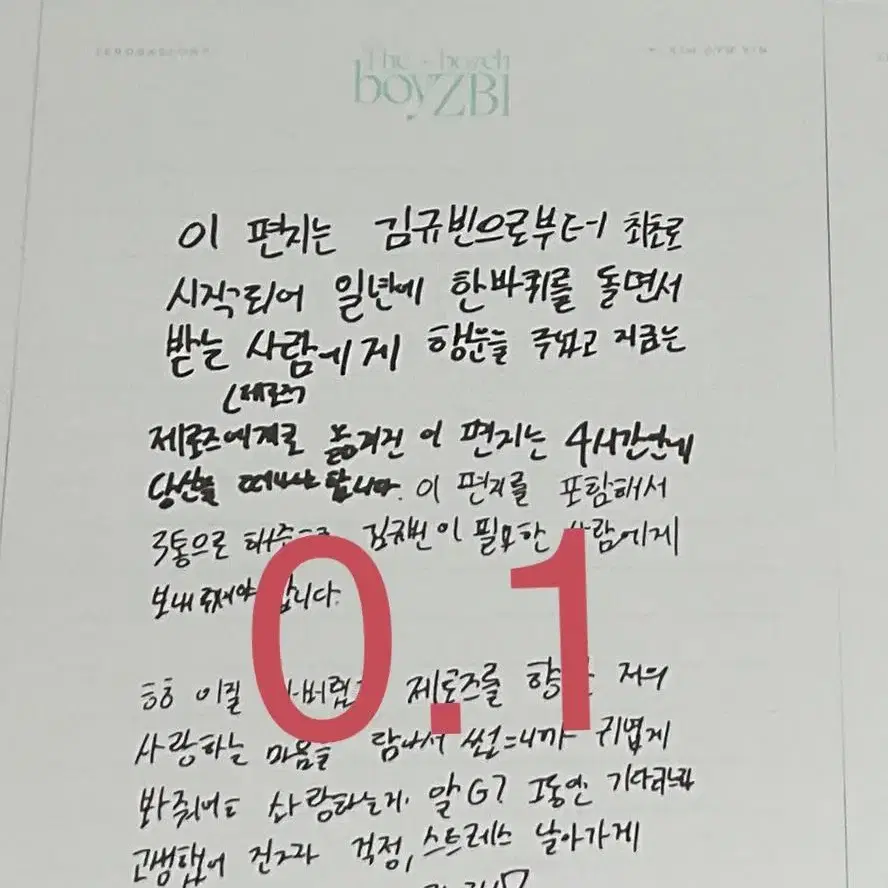 The boyZBI
이 편지는 김규빈으로부터 최초로
시작되어 일년에 한바퀴를 돌면서
받는 사람에게 행운을 주었고 지금은
(제로즈
제로즈에게로 옮겨진 이 편지는 4시간안에
당신을 떠나야 합니다. 이 편지를 포함해서
3통으로 김규빈이 필요한 사람에게
보내줘야 합니다.
0.1
ㅎㅎ 이럴 제로즈를 향한 저의
사랑하는 마음을 담아서 썼으니까 귀엽게
봐줘여 사랑하는거 알G? 그동안 기다리느라
고생했어 걱정, 스트레스 날아가게